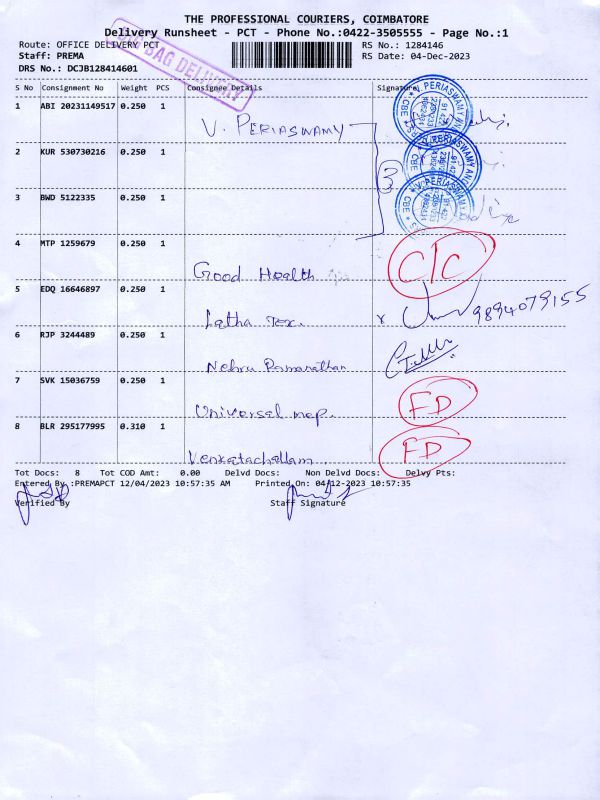 THE PROFESSIONAL COURIERS, COIMBATORE
Delivery Runsheet - PCT - Phone No.:0422-3505555 - Page No.:1
Route: OFFICE DELIVERY PCT
RS No.: 1284146
Staff: PREMA
RS Date: 04-Dec-2023
DRS No.: DCJB128414601
BAG DELIVERY
S No Consignment No Weight PCS Consignee Details Signature
1 ABI 20231149517 0.250 1
V. PERIASWAMY
2 KUR 530730216 0.250 1
3
3 BWD 5122335 0.250 1
4 MTP 1259679 0.250 1
Good Health
C/C
5 EDQ 16646897 0.250 1
Latha Tex.
9894079155
6 RJP 3244489 0.250 1
Nehru Ramanathan
7 SVK 15036759 0.250 1
Universal mep.
FD
8 BLR 295177995 0.310 1
Venkatachallam
FD
Tot Docs: 8 Tot COD Amt: 0.00 Delvd Docs: Non Delvd Docs: Delvy Pts:
Entered By :PREMAPCT 12/04/2023 10:57:35 AM Printed On: 04/12-2023 10:57:35
Verified By Staff Signature